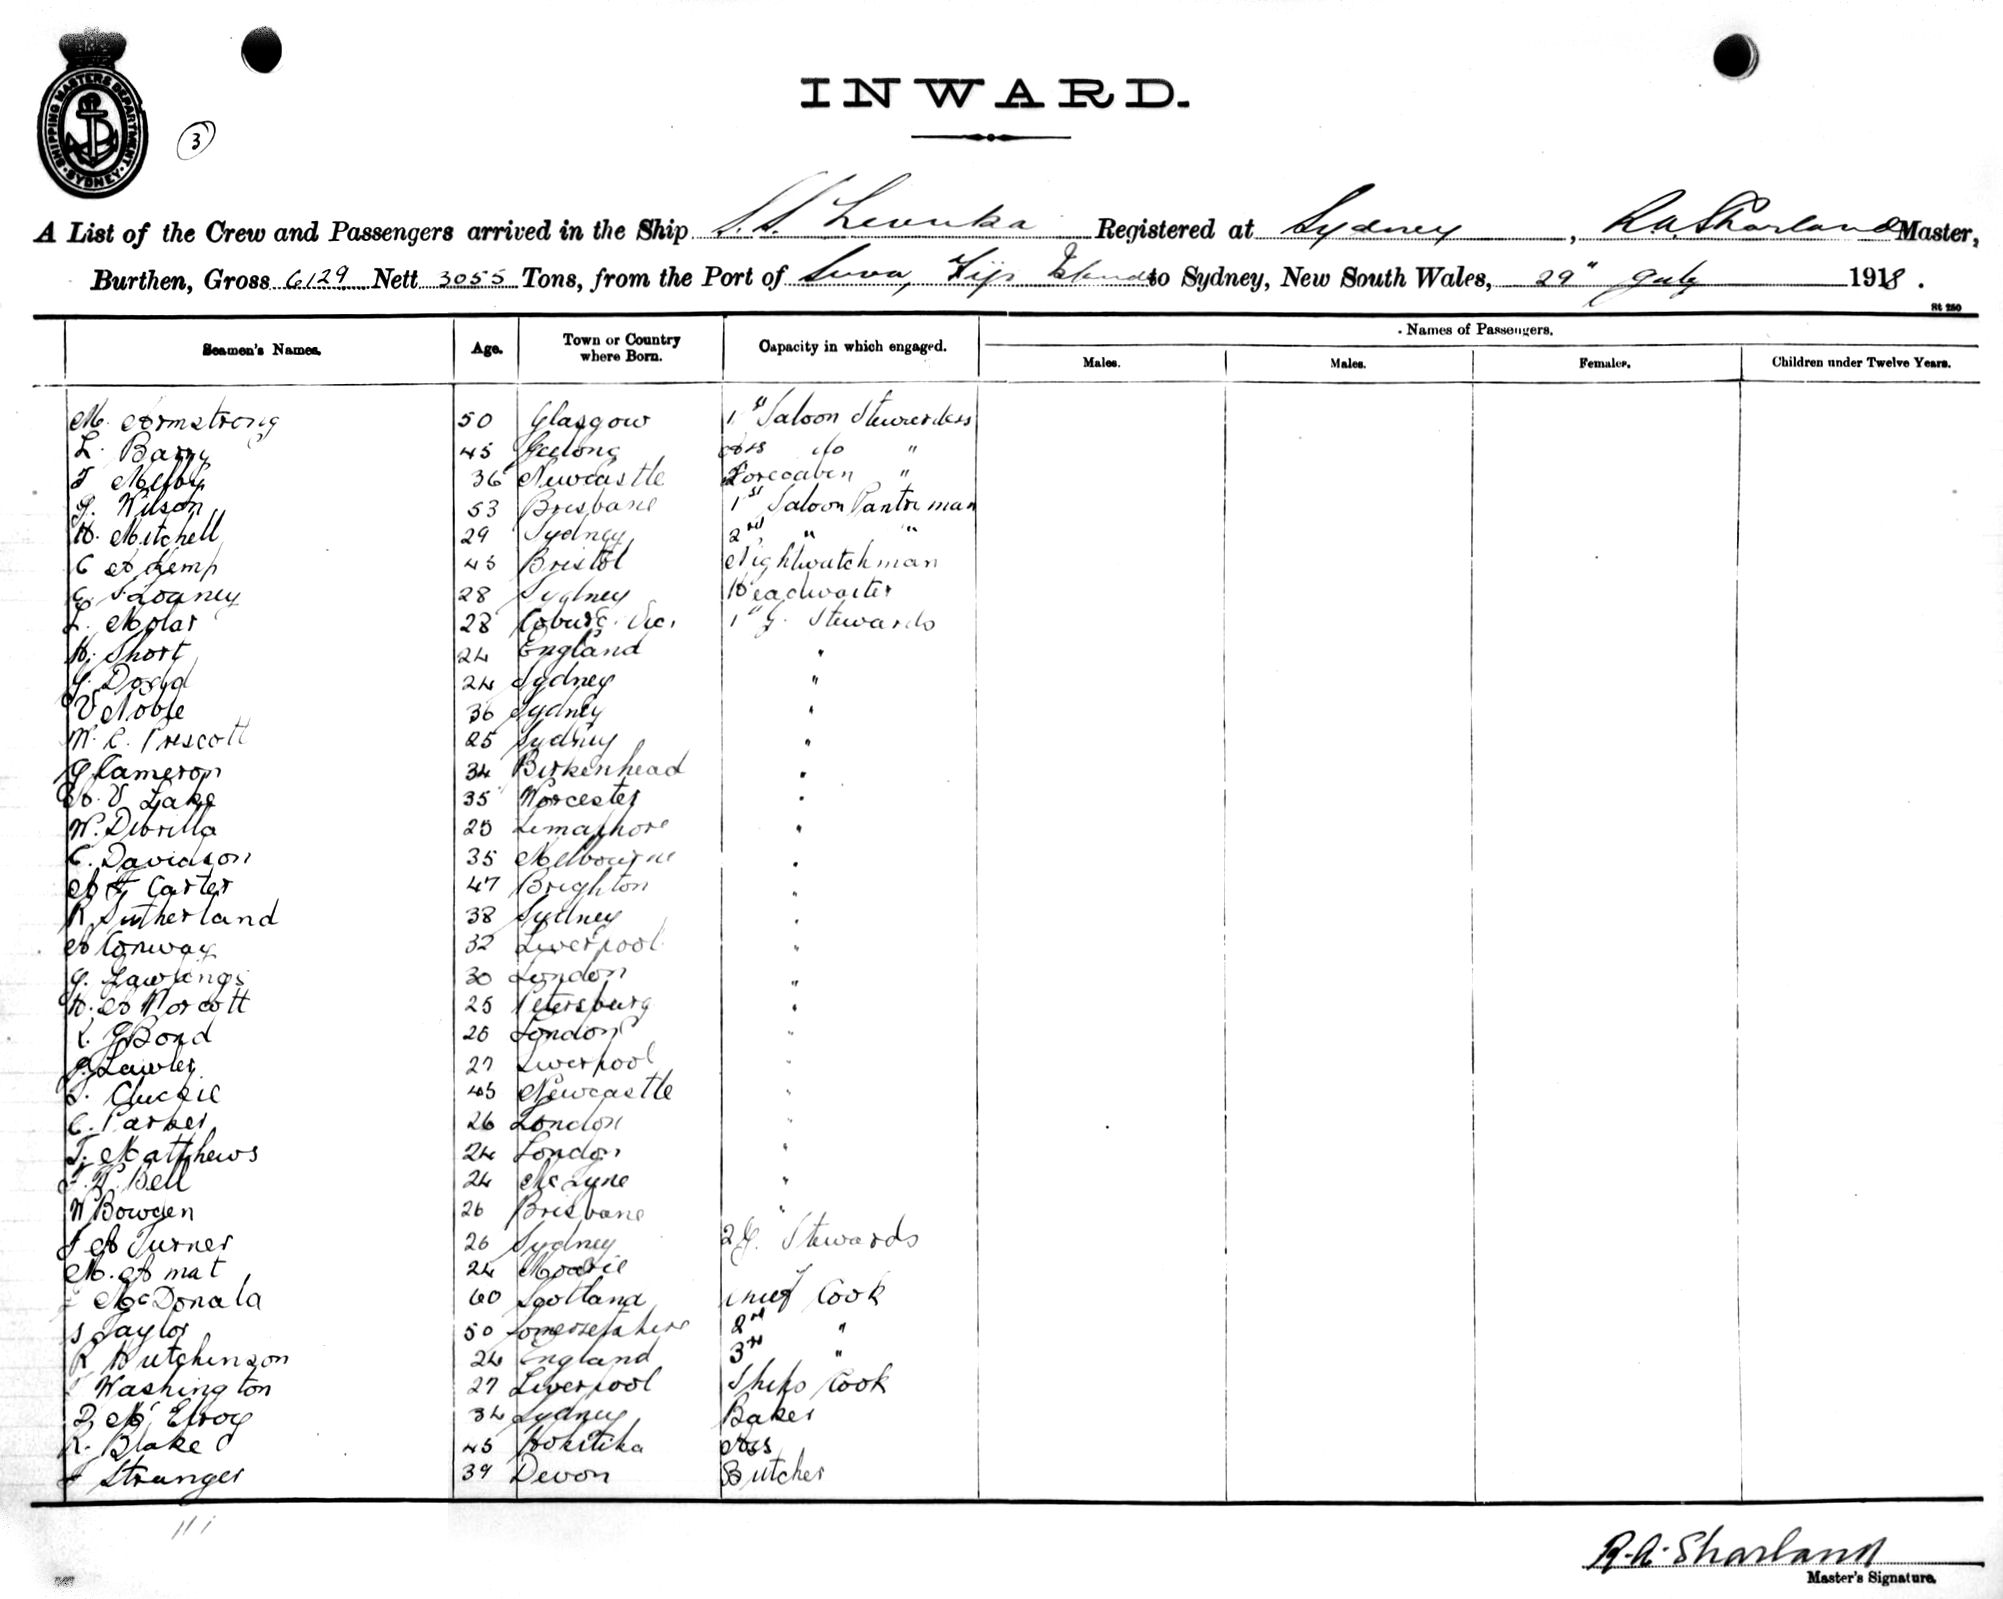 SHIPPING MASTERS DEPARTMENT
SYDNEY
3
INWARD.
A List of the Crew and Passengers arrived in the Ship S.S. Levuka Registered at Sydney, R.A. Sharland Master,
Burthen, Gross 6129 Nett 3055 Tons, from the Port of Suva, Fiji Islands to Sydney, New South Wales, 29" July 1918.
St 280
Seamen's Names. Age. Town or Country where Born. Capacity in which engaged. Names of Passengers.
Males. Males. Females. Children under Twelve Years.
M. Armstrong 50 Glasgow 1st Saloon Stewardess
L. Barry 45 Geelong Ass do "
Melby 36 Newcastle Forecabin "
G. Wilson 53 Brisbane 1st Saloon Pantryman
H. Mitchell 29 Sydney 2nd " "
C A Kemp 45 Bristol Nightwatchman
28 Sydney Headwaiter
L. Molar 28 Coburg. Vic. 1st G. Stewards
H. Short 24 England "
Dodd 24 Sydney "
V Noble 36 Sydney "
W. C. Prescott 25 Sydney "
G Cameron 34 Birkenhead "
A. V Lake 35 Worcester "
W. 25 "
C. Davidson 35 Melbourne "
A F Carter 47 Brighton "
R Sutherland 38 Sydney "
A Conway 32 Liverpool "
G. Rawlings 30 London "
H. A Norcott 25 Petersburg "
Bond 26 London "
J. Lawler 27 Liverpool "
45 Newcastle "
C. Parker 26 London "
T. Matthews 24 London "
W. Bell 24 "
W Bowden 26 Brisbane "
J A Turner 26 Sydney 2 G. Stewards
M. Amat 24
McDonald 60 Scotland Chief Cook
S Taylor 50 Somersetshire 2nd "
R Hutchinson 24 England 3rd "
Washington 27 Liverpool Ships Cook
D McElroy 34 Sydney Baker
R. Blake 45 Hokitika Ass
J Stranger 39 Devon Butcher
R.A. Sharland
Master's Signature.